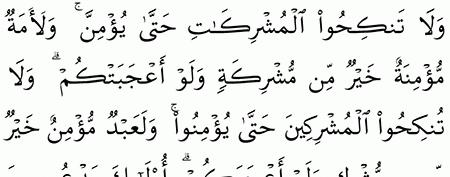 وَلَا تَنكِحُوا۟ ٱلْمُشْرِكَـٰتِ حَتَّىٰ يُؤْمِنَّ ۚ وَلَأَمَةٌ
مُّؤْمِنَةٌ خَيْرٌ مِّن مُّشْرِكَةٍ وَلَوْ أَعْجَبَتْكُمْ ۗ وَلَا
تُنكِحُوا۟ ٱلْمُشْرِكِينَ حَتَّىٰ يُؤْمِنُوا۟ ۚ وَلَعَبْدٌ مُّؤْمِنٌ خَيْرٌ